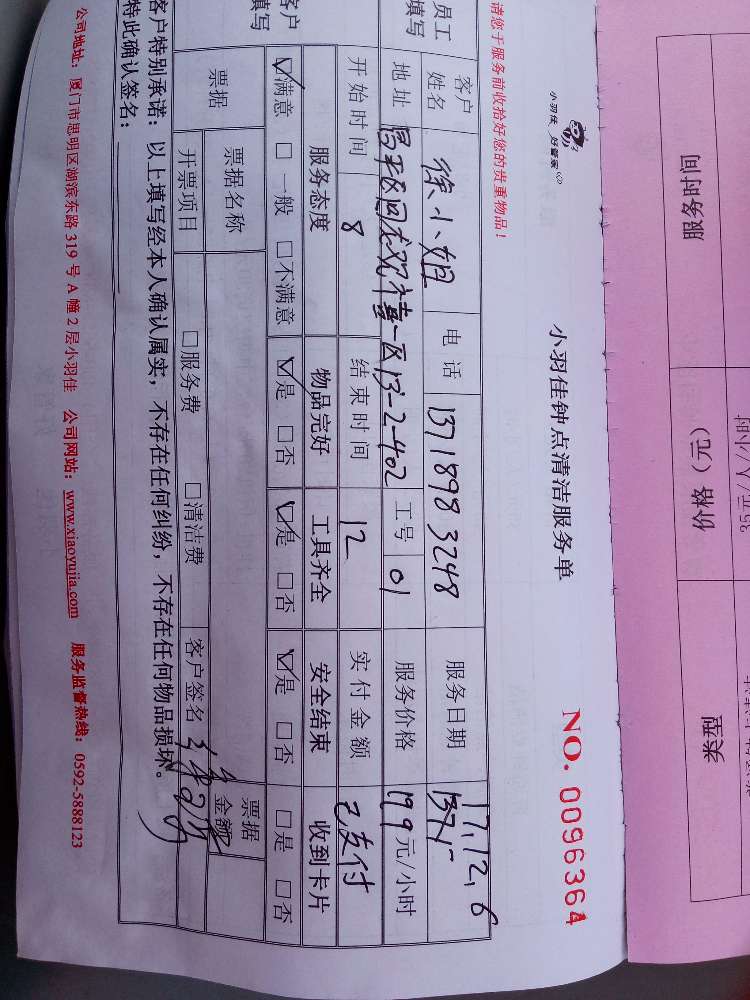 小羽佳 好管家
小羽佳钟点清洁服务单
NO. 0096364
请您于服务前收拾好您的贵重物品！
员工填写
客户姓名 徐小姐 电话 13718983248 服务日期 17,12,6
地址 昌平区回龙观 一区13-2-402 工号 01 服务价格 199元/小时
开始时间 8 结束时间 12 实付金额 已支付
客户填写
服务态度 物品完好 工具齐全 安全结束 收到卡片
☑满意 □一般 □不满意 ☑是 □否 ☑是 □否 ☑是 □否 □是 □否
票据 票据名称 票据金额
开票项目 □服务费 □清洁费 客户签名
客户特别承诺：以上填写经本人确认属实，不存在任何纠纷，不存在任何物品损坏。
特此确认签名：
公司地址：厦门市思明区湖滨东路 319 号 A 幢 2 层小羽佳 公司网站：www.xiaoyujia.com 服务监督热线：0592-5888123
服务时间 价格（元） 类型
35元/人/小时